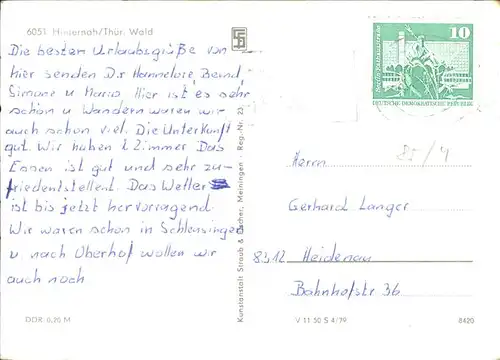 6051 Hinternah/Thür. Wald
Die besten Urlaubsgrüße von
hier senden Dir Hannelore, Bernd,
Simone u Mario. Hier ist es sehr
schön u Wandern waren wir
auch schon viel. Die Unterkunft
gut. Wir haben 2 Zimmer Das
Essen ist gut und sehr zu-
friedenstellent. Das Wetter
ist bis jetzt hervorragend.
Wir waren schon in Schleusingen
u nach Oberhof wollen wir
auch noch
DDR: 0,20 M
Kunstanstalt Straub & Fischer, Meiningen - Reg.-Nr. 23
10
DEUTSCHE DEMOKRATISCHE REPUBLIK
85/4
Herrn
Gerhard Langer
8312 Heidenau
Bahnhofstr 36
V 11 50 S 4/79
8420